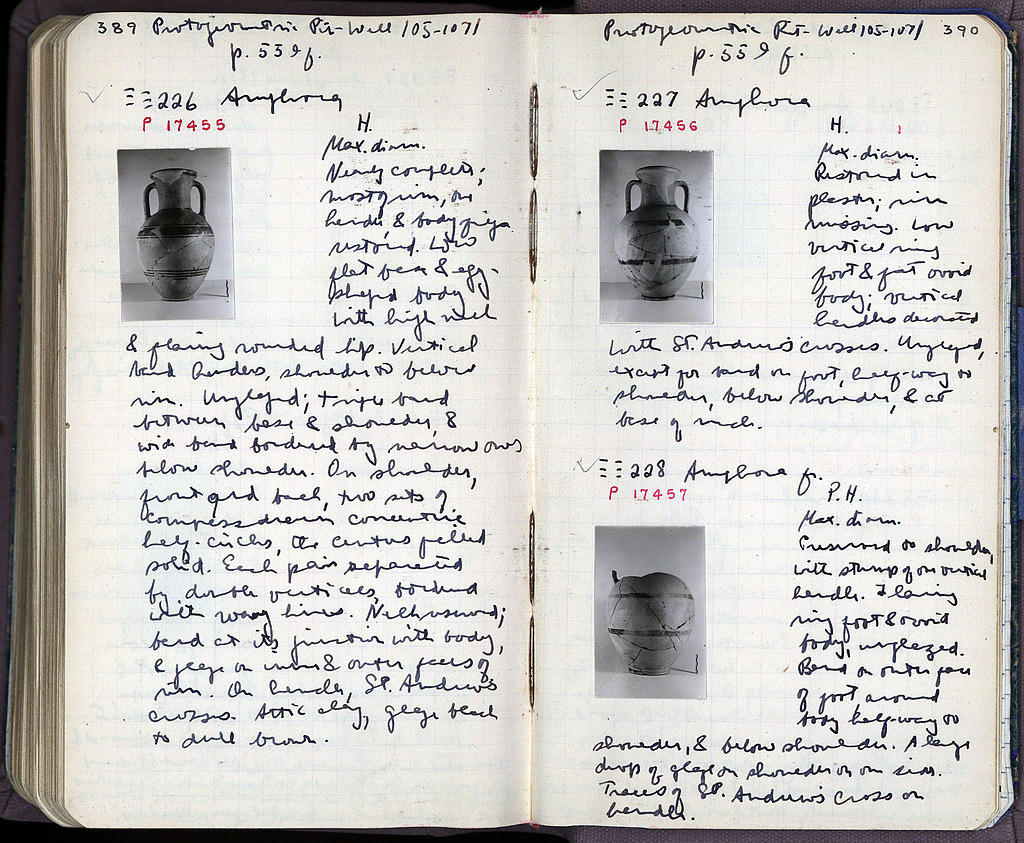 389 Protogeometric Pit-Well 105-107/
p. 559 f.
ΞΞ 226 Amphora
P 17455
H.
Max. diam.
Nearly complete;
most of rim, one
handle & body frags
restored. Low
flat base & egg-
shaped body
with high neck
& flaring rounded lip. Vertical
band handles, shoulder to below
rim. Unglazed; triple band
between base & shoulder, &
wide band bordered by narrow ones
below shoulder. On shoulder,
front and back, two sets of
compass drawn concentric
half-circles, the centres filled
solid. Each pair separated
by double verticals, bordered
with wavy lines. Neck reserved;
band at its junction with body,
& glaze on inner & outer faces of
rim. On handles, St. Andrew's
crosses. Attic clay, glaze black
to dull brown.
Protogeometric Pit-Well 105-107/ 390
p. 559 f.
ΞΞ 227 Amphora
P 17456
H.
Max. diam.
Restored in
plaster; rim
missing. Low
vertical ring
foot & fat ovoid
body; vertical
handles decorated
with St. Andrew's crosses. Unglazed,
except for band on foot, half-way to
shoulder, below shoulder, & at
base of neck.
ΞΞ 228 Amphora fr.
P 17457
P.H.
Max. diam.
Preserved to shoulder,
with stump of one vertical
handle. Flaring
ring foot & ovoid
body, unglazed.
Band on outer face
of foot, around
body half-way to
shoulder, & below shoulder. A large
drop of glaze on shoulder on one side.
Traces of St. Andrew's cross on
handle.